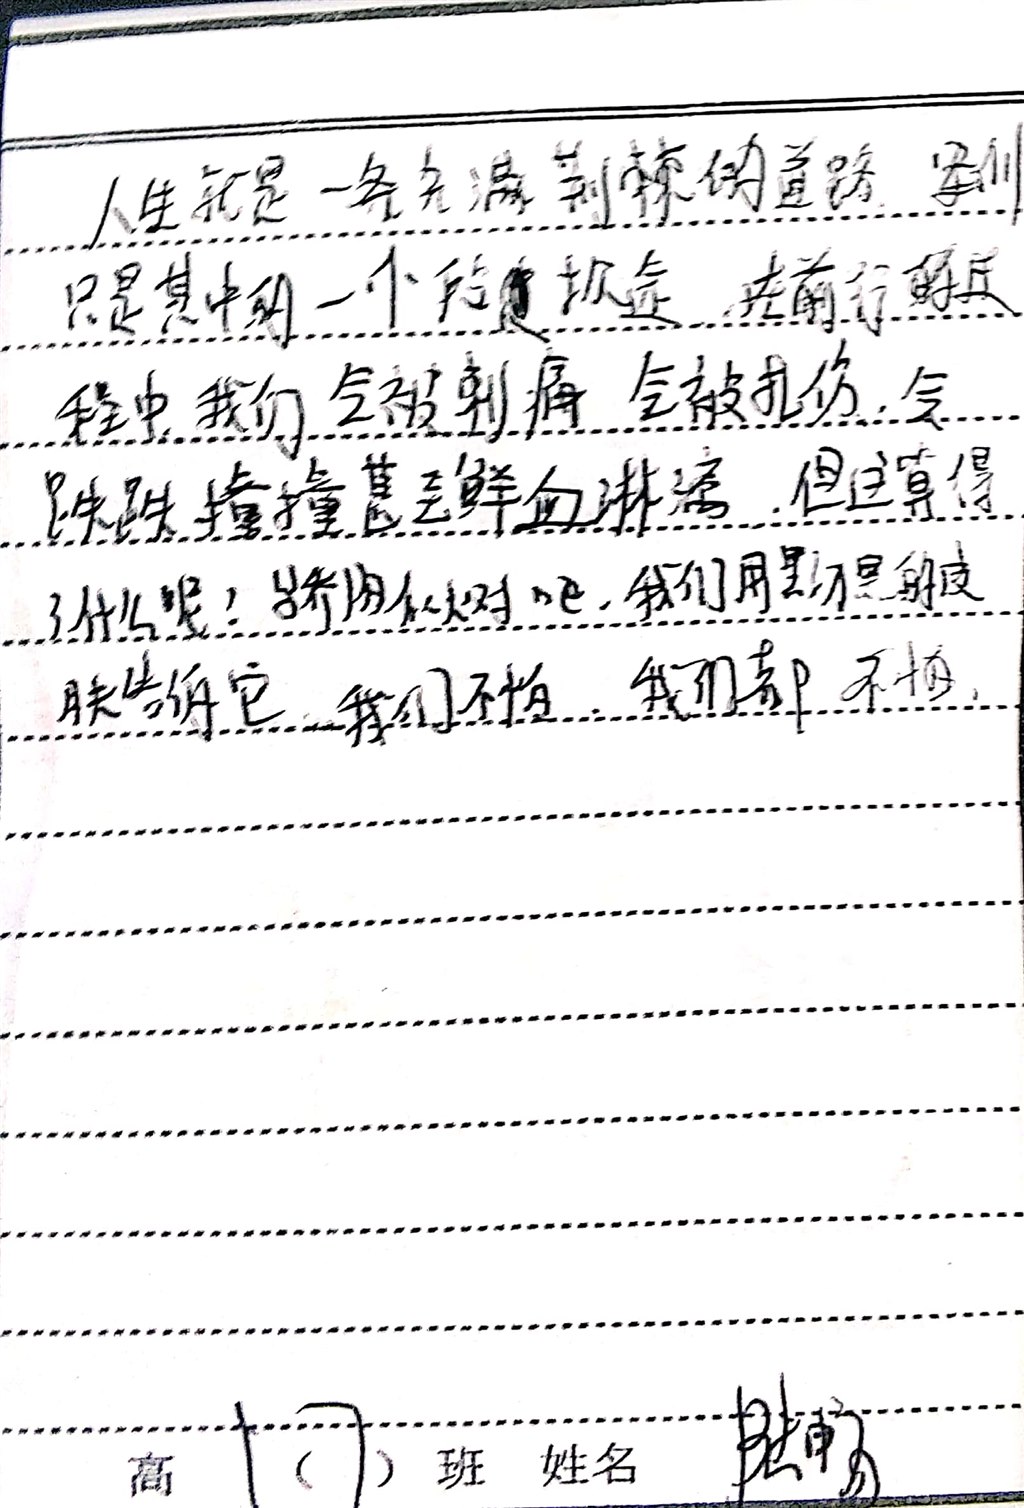 人生就是一条充满荆棘的道路 军训
只是其中的一个 坎途 在前行的过
程中 我们会被刺痛 会被扎伤，会
跌跌撞撞甚至鲜血淋漓，但这算得
了什么呢！骄阳似火对吧，我们用黑不黑的皮
肤告诉它 我们不怕，我们都不怕，
高 （ ） 班 姓名